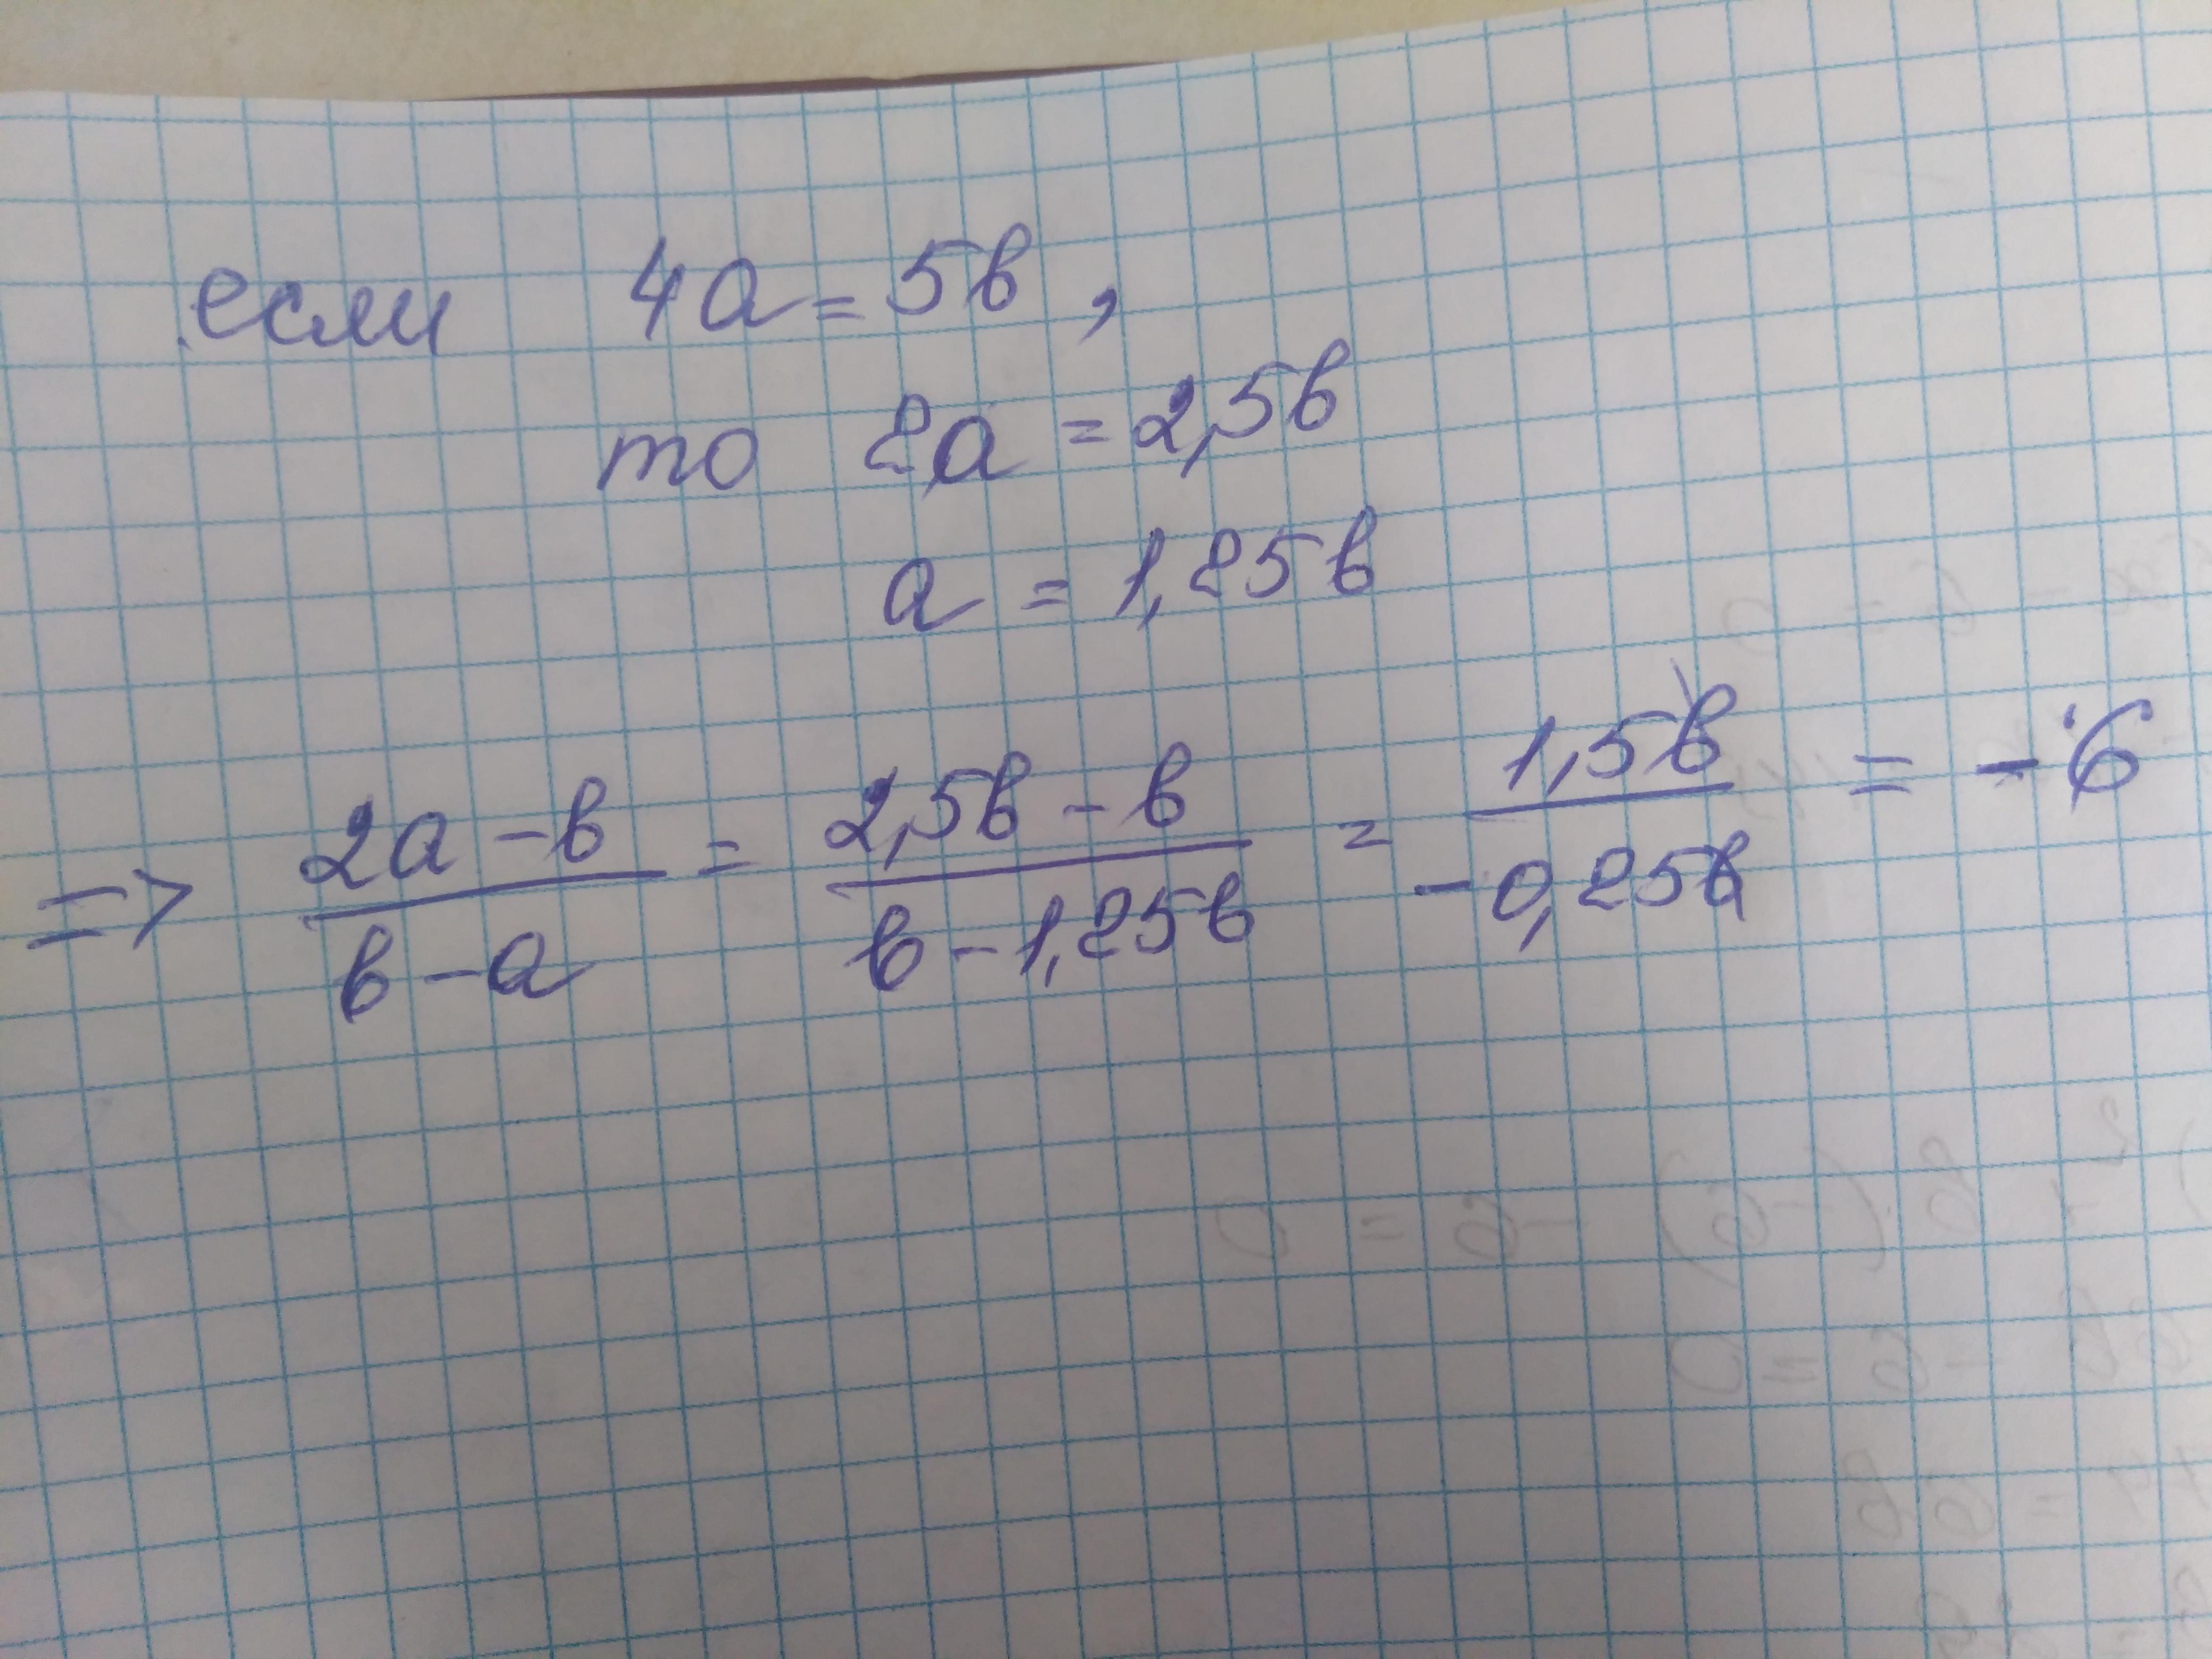 если 4a = 5b ,
то 2a = 2,5b
a = 1,25b
=> (2a - b)/(b - a) = (2,5b - b)/(b - 1,25b) = 1,5b/(-0,25b) = - 6